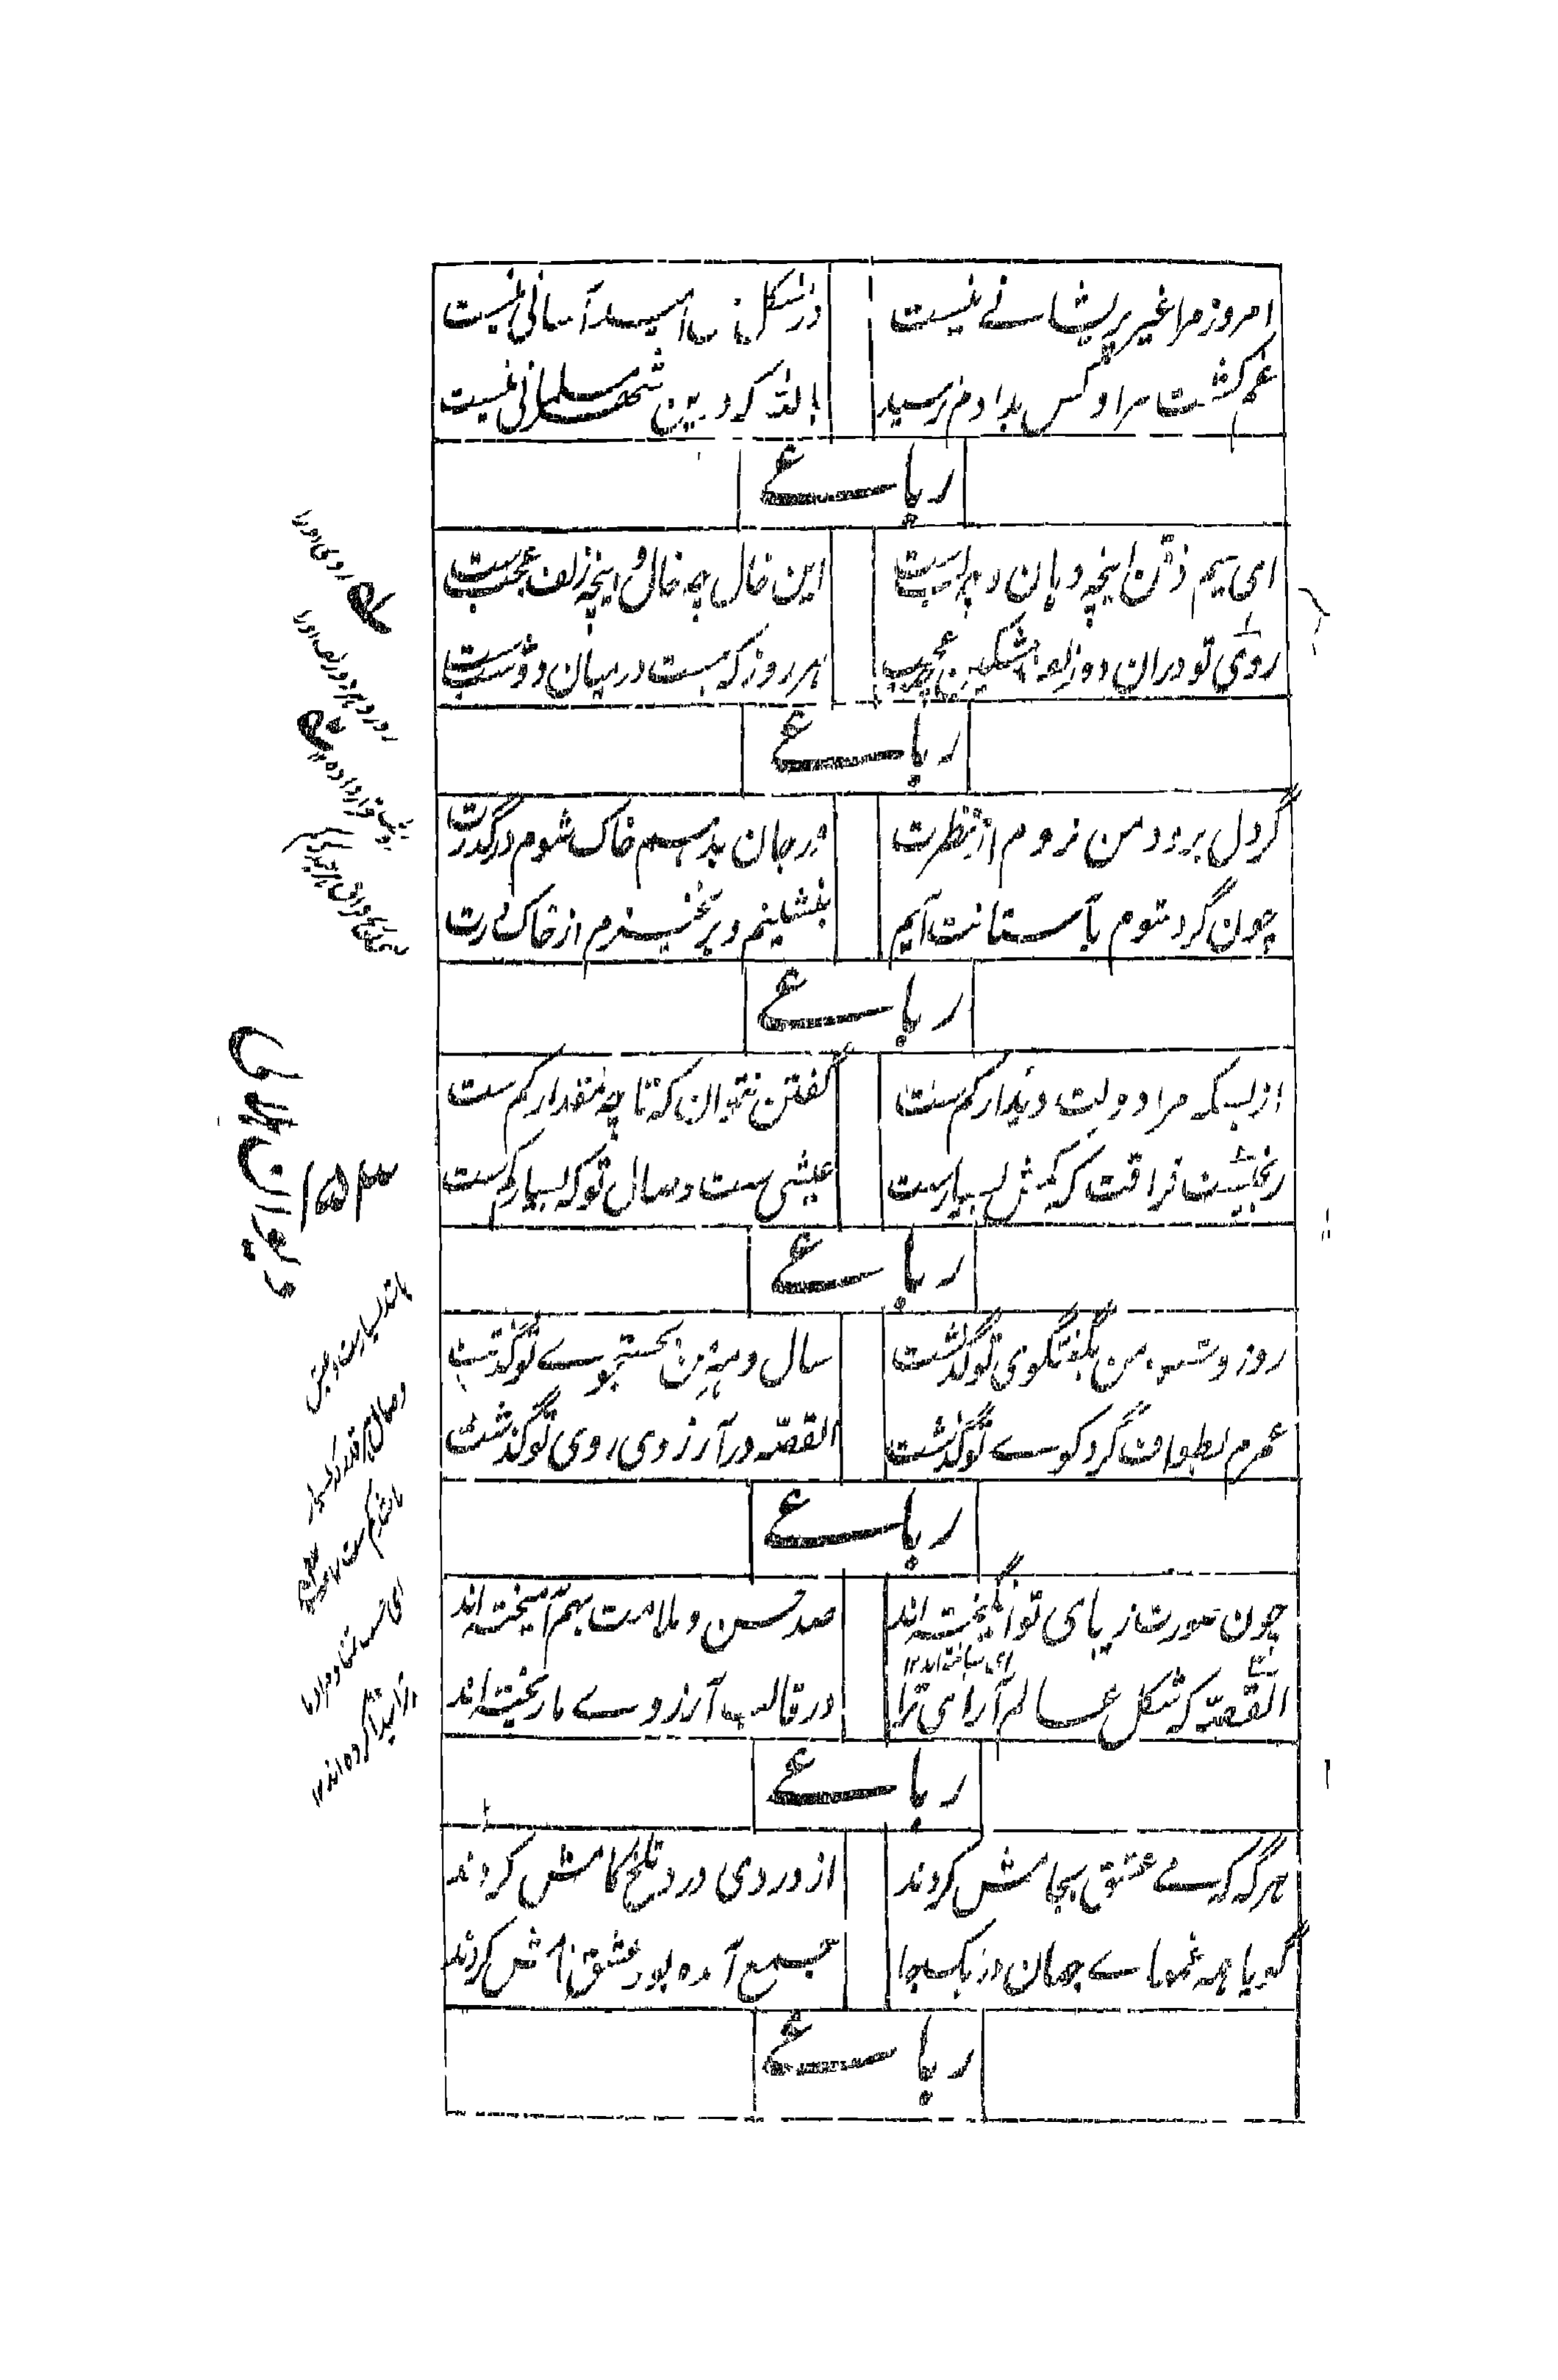 امروز مرا غیر پریشانے نیست
در مشکل من امید آسانی نیست
غم کشت مرا و کس بدادم نرسید
باللہ کہ درین شهر مسلمانی نیست
رباعے
ای سیم ذقن اینچہ دہان و چہ لبست
این خال چہ خال و اینچہ زلف عجبست
روی تو دران دو زلف مشکین چہ عجب
هر روز کہ هست درمیان دو شبست
رباعے
گر دل برود من نروم از نظرت
ور جان بدهم خاک شوم در گذرت
چون گرد شوم بآستانت آیم
بنشینم و برنخیزم از خاک درت
رباعے
از بسکہ مرا دولت دیدار کم ست
گفتن نتوان کہ تا چہ مقدار کم ست
رنجیست فراقت کہ کمش بسیارست
عیشی ست وصال تو کہ بسیار کم ست
رباعے
روز و شب من بگفتگوی تو گذشت
سال و مہ من بجستجوے تو گذشت
عمرم بطواف گرد کوے تو گذشت
القصّہ در آرزوی روی تو گذشت
رباعے
چون صورت زیبای تو انگیختہ اند
صد حسن و ملاحت بهم آمیختہ اند
القصّہ کہ شکل عالم آرای ترا
در قالب آرزوے ما ریختہ اند
رباعے
هرگہ کہ مے عشق بجامش کردند
از دردی درد تلخ کامش کردند
گویا همہ غمهاے جهان در یکجا
جمع آمدہ بود عشق نامش کردند
رباعے
دیوان ہلالی